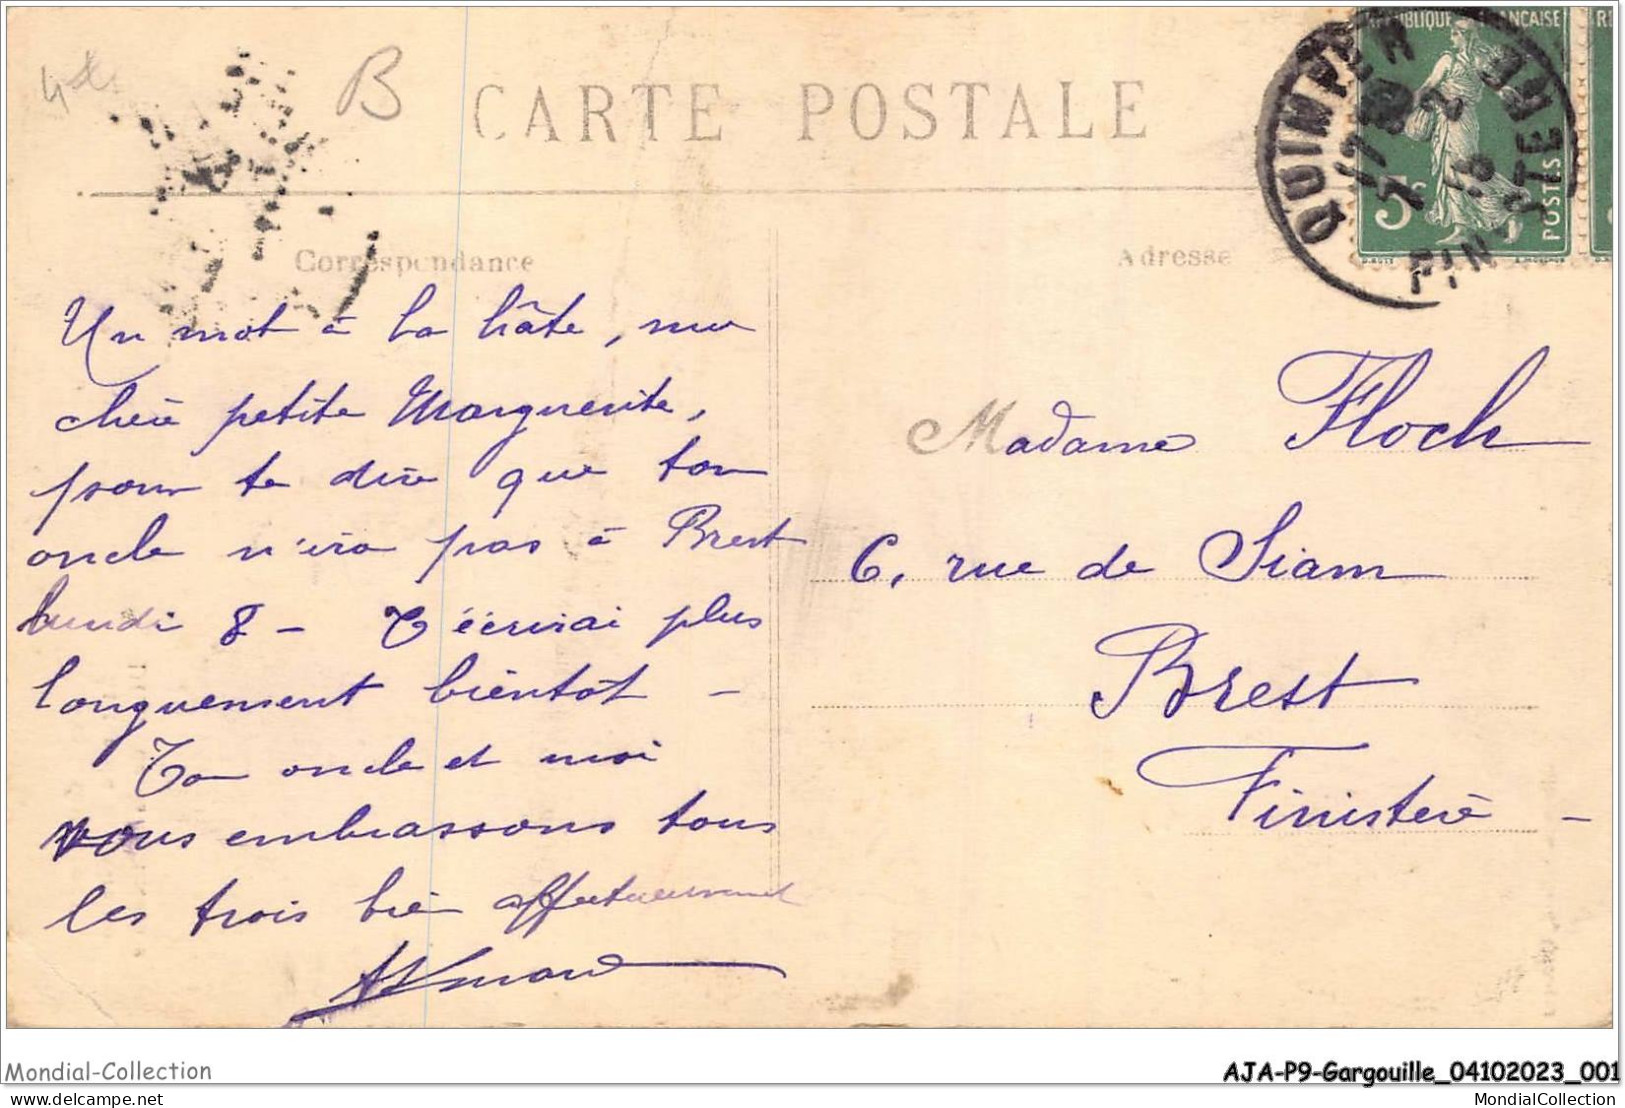 4
B
CARTE POSTALE
RÉPUBLIQUE FRANÇAISE
5c
POSTES
QUIMPER
17 30
7 2
FINISTERE
Correspondance
Adresse
Un mot à la hâte, ma
chère petite Marguerite,
pour te dire que ton
oncle n'ira pas à Brest
lundi 8 - T'écrirai plus
longuement bientôt -
Ton oncle et moi
vous embrassons tous
les trois bien affectueusement
Madame Floch
6, rue de Siam
Brest
Finistère -
Mondial-Collection
AJA-P9-Gargouille_04102023_001
delcampe.net
MondialCollection